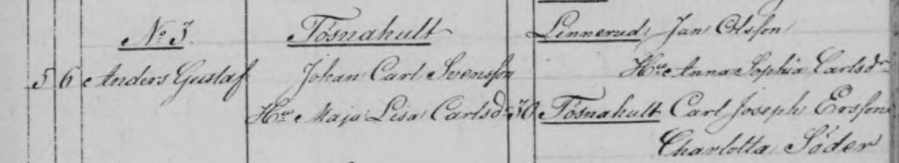 No 3. Tosnahult Linnerud, Jan Olsson
5 6 Anders Gustaf Johan Carl Svensson Hu Anna Sophia Carlsdr
Hu Maja Lisa Carlsdr 30 Tosnahult Carl Joseph Ersson
Charlotta Söder